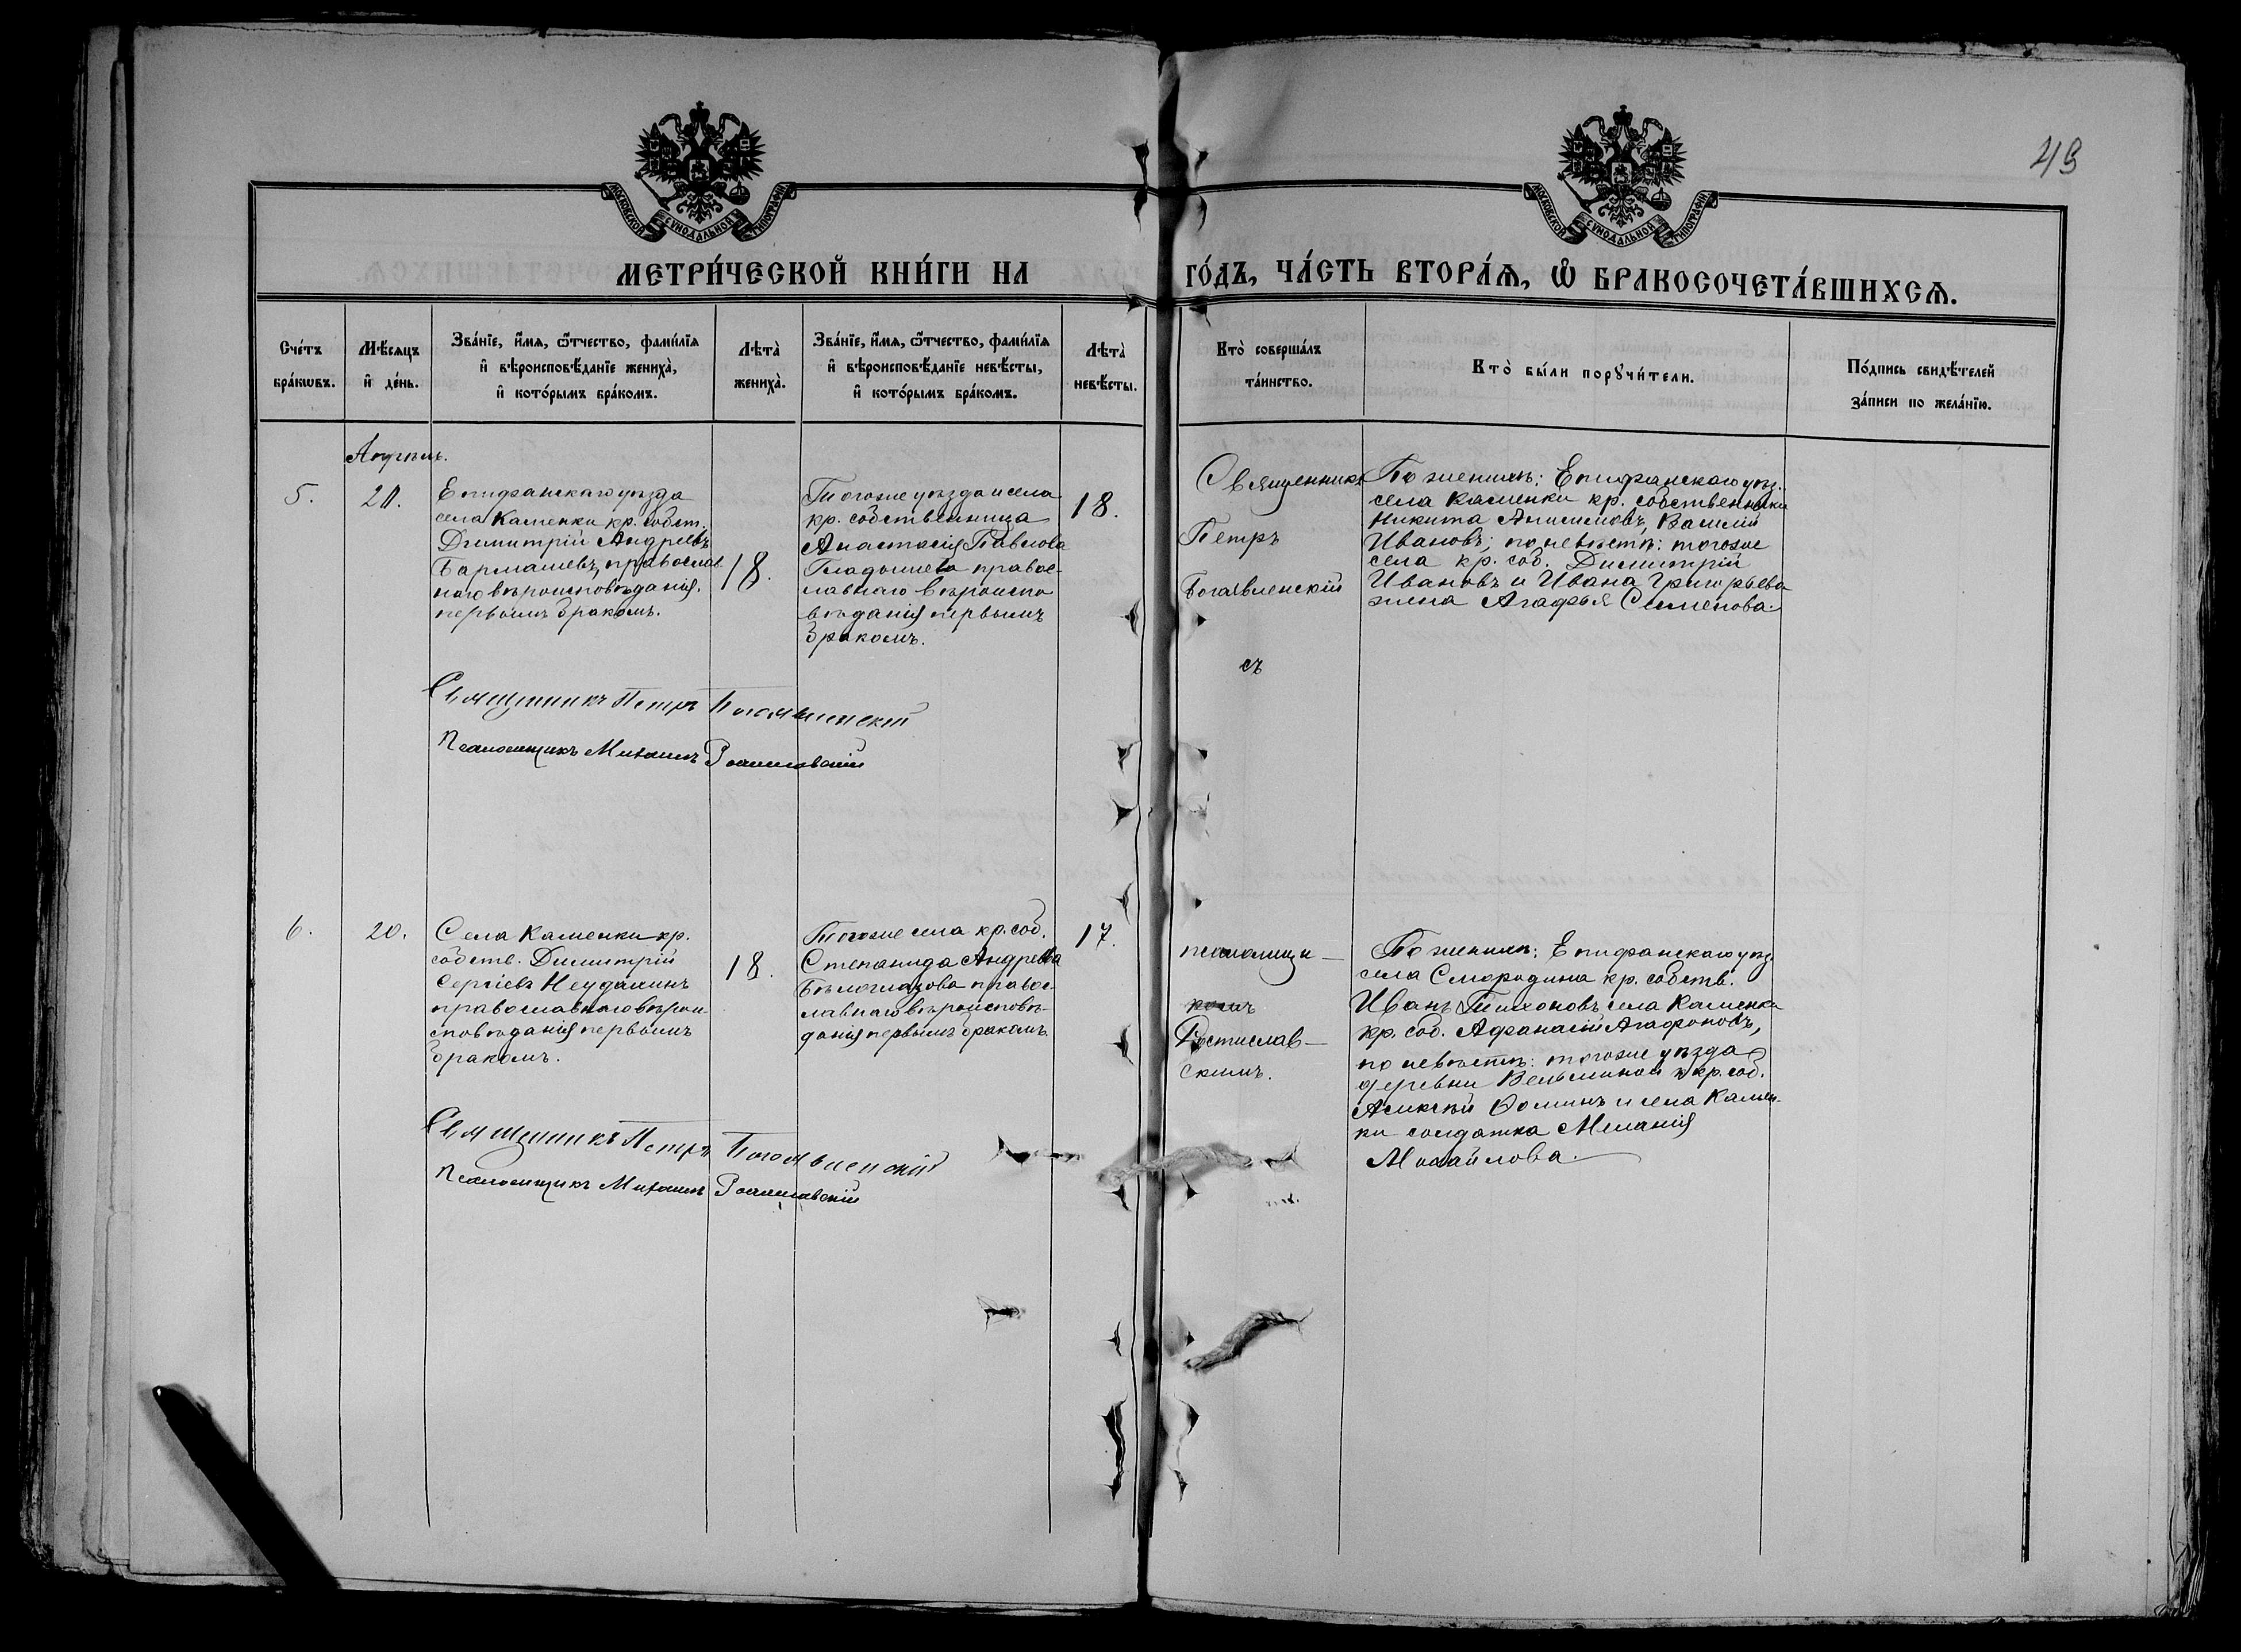 49
МОСКОВСКОЙ СУНОДАЛЬНОЙ ТИПОГРАФІИ
МОСКОВСКОЙ СУНОДАЛЬНОЙ ТИПОГРАФІИ
МЕТРИ́ЧЕСКОЙ КНИ́ГИ НА ГО́ДЪ, ЧА́СТЬ ВТОРА́Ѧ, Ѽ БРАКОСОЧЕТА́ВШИХСѦ.
Сче́тъ
бра́кѡвъ.
Мѣ́сѧцъ
и҆ де́нь.
Зва́нїе, и҆́мѧ, ѻ҆́тчество, фами́лїѧ
и҆ вѣроисповѣ́данїе жениха̀,
и҆ кото́рымъ бра́комъ.
Лѣта̀
жениха̀.
Зва́нїе, и҆́мѧ, ѻ҆́тчество, фами́лїѧ
и҆ вѣроисповѣ́данїе невѣ́сты,
и҆ кото́рымъ бра́комъ.
Лѣта̀
невѣ́сты.
Кто̀ соверша́лъ
та́инство.
Кто̀ бы́ли порꙋчи́тели.
По́дпись свидѣ́телей
за́писи по жела́нїю.
Апрѣль.
5.
20.
Епифанскаго уѣзда
села Каменки кр. собст.
Димитрій Андреевъ
Бармашевъ, православ
наго вѣроисповѣданія.
первымъ бракомъ.
18.
Тогоже уѣзда и села
кр. собственница
Анастасія Павлова
Гладышева правос-
лавнаго вѣроиспо
вѣданія первымъ
бракомъ.
18.
Священникъ
Петръ
Богоявленскій
съ
По женихѣ: Епифанскаго уѣз.
села Каменки кр. собственники
Никита Анисимовъ, Василій
Ивановъ; по невѣстѣ: тогоже
села кр. соб. Димитрій
Ивановъ и Ивана Григорьева
жена Агафья Семенова.
Священникъ Петръ Богоявленскій
Псаломщикъ Михаилъ Ростиславскій
6.
20.
Села Каменки кр.
собств. Димитрій
Сергіевъ Неудахинъ
православнаго вѣрои-
сповѣданія первымъ
бракомъ.
18.
Тогоже села кр. соб.
Степанида Андреева
Бѣлоглазова правос-
лавнаго вѣроисповѣ-
данія первымъ бракомъ.
17.
псаломщи-
комъ
Ростислав-
скимъ.
По женихѣ: Епифанскаго уѣз
села Смородина кр. собств.
Иванъ Тихоновъ села Каменки
кр. соб. Афанасій Агафоновъ,
по невѣстѣ: тогоже уѣзда
деревни кр. соб.
Алексѣй Ѳоминъ и села Камен-
ки солдатка Меланія
Михайлова.
Священникъ Петръ Богоявленскій
Псаломщикъ Михаилъ Ростиславскій